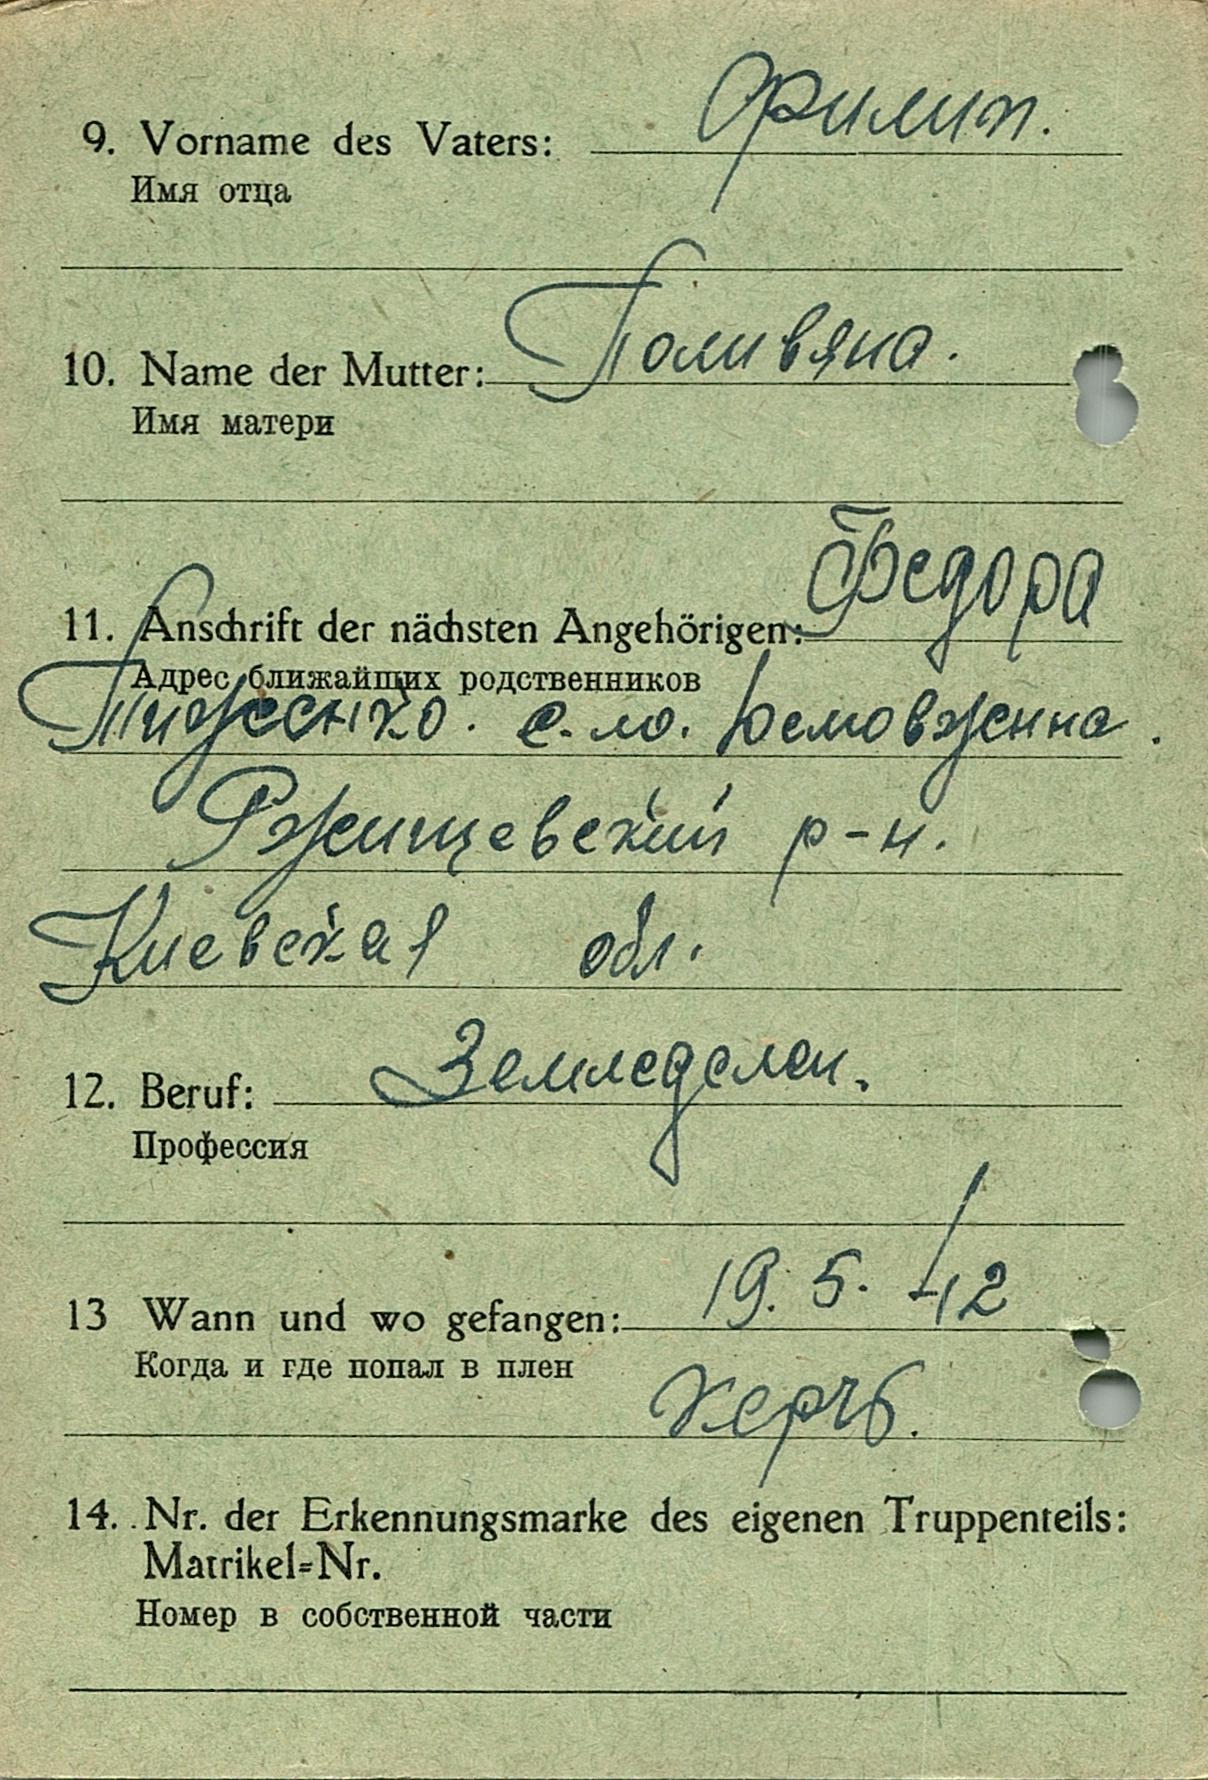 9. Vorname des Vaters: Филип.
Имя отца
10. Name der Mutter: Поливяна.
Имя матери
Федора
11. Anschrift der nächsten Angehörigen:
Адрес ближайших родственников
с. Юемовженна.
Ржищевский р-н.
Киевская обл.
12. Beruf: Земледелец.
Профессия
19. 5. 42
13 Wann und wo gefangen:
Когда и где попал в плен
Керчь.
14. Nr. der Erkennungsmarke des eigenen Truppenteils:
Matrikel=Nr.
Номер в собственной части